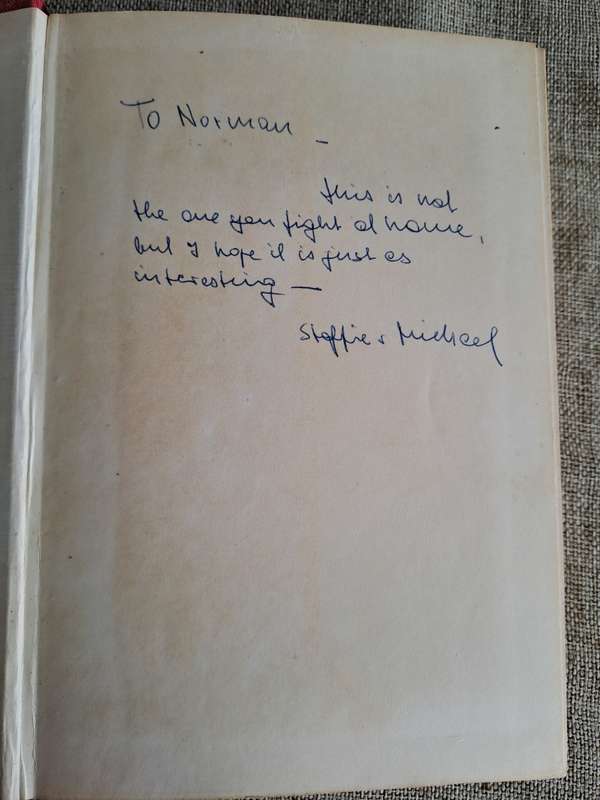 To Norman –
this is not
the one you fight at home,
but I hope it is just as
interesting —
Steffie + Michael